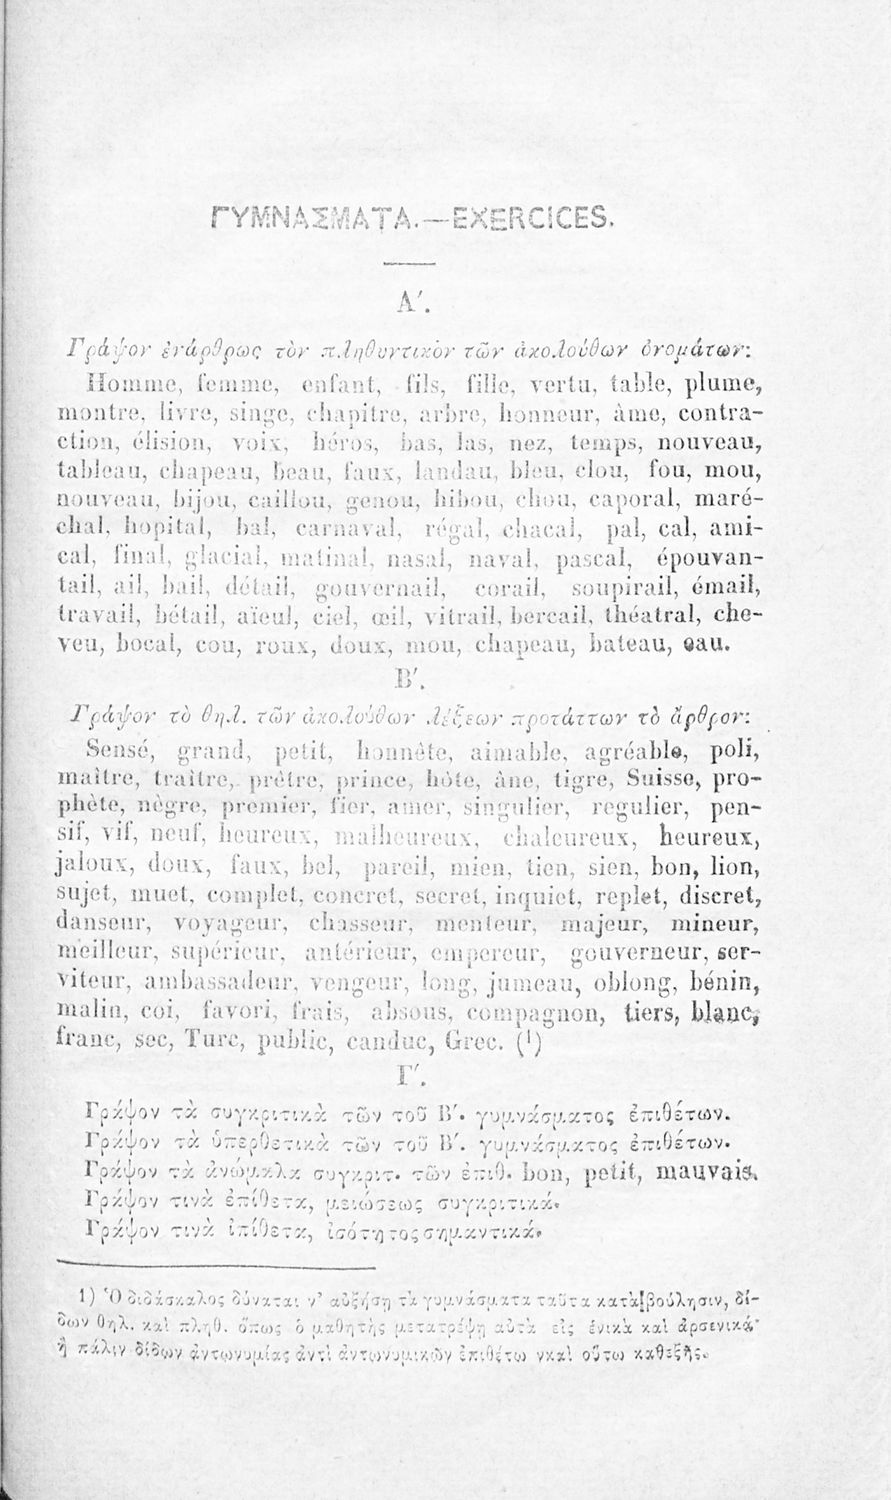 ΓΥΜΝΑΣΜΑΤΑ.—EXERCICES.
Α΄.
Γράψον ἐνάρθρως τὸν πληθυντικὸν τῶν ἀκολούθων ὀνομάτων:
Homme, femme, enfant, fils, fille, vertu, table, plume,
montre, livre, singe, chapitre, arbre, honneur, âme, contra-
ction, élision, voix, héros, bas, las, nez, temps, nouveau,
tableau, chapeau, beau, faux, landau, bleu, clou, fou, mou,
nouveau, bijou, caillou, genou, hibou, chou, caporal, maré-
chal, hopital, bal, carnaval, régal, chacal, pal, cal, ami-
cal, final, glacial, matinal, nasal, naval, pascal, épouvan-
tail, ail, bail, détail, gouvernail, corail, soupirail, émail,
travail, bétail, aïeul, ciel, œil, vitrail, bercail, théatral, che-
veu, bocal, cou, roux, doux, mou, chapeau, bateau, eau.
Β΄.
Γράψον τὸ θηλ. τῶν ἀκολούθων λέξεων προτάττων τὸ ἄρθρον:
Sensé, grand, petit, honnête, aimable, agréable, poli,
maître, traître, prêtre, prince, hôte, âne, tigre, Suisse, pro-
phète, nègre, premier, fier, amer, singulier, regulier, pen-
sif, vif, neuf, heureux, malheureux, chaleureux, heureux,
jaloux, doux, faux, bel, pareil, mien, tien, sien, bon, lion,
sujet, muet, complet, concret, secret, inquiet, replet, discret,
danseur, voyageur, chasseur, menteur, majeur, mineur,
meilleur, supérieur, antérieur, empereur, gouverneur, ser-
viteur, ambassadeur, vengeur, long, jumeau, oblong, bénin,
malin, coi, favori, frais, absous, compagnon, tiers, blanc,
franc, sec, Turc, public, canduc, Grec. (¹)
Γ΄.
Γράψον τὰ συγκριτικὰ τῶν τοῦ Β΄. γυμνάσματος ἐπιθέτων.
Γράψον τὰ ὑπερθετικὰ τῶν τοῦ Β΄. γυμνάσματος ἐπιθέτων.
Γράψον τὰ ἀνώμαλα συγκριτ. τῶν ἐπιθ. bon, petit, mauvais.
Γράψον τινὰ ἐπίθετα, μειώσεως συγκριτικά.
Γράψον τινὰ ἐπίθετα, ἰσότητος σημαντικά.
1) Ὁ διδάσκαλος δύναται ν' αὐξήσῃ τὰ γυμνάσματα ταῦτα κατὰ βούλησιν, δί-
δων θηλ. καὶ πληθ. ὅπως ὁ μαθητὴς μετατρέψῃ αὐτὰ εἰς ἑνικὰ καὶ ἀρσενικά·
ἢ πάλιν δίδων ἀντωνυμίας ἀντὶ ἀντωνυμικῶν ἐπιθέτω νκαὶ οὕτω καθεξῆς.